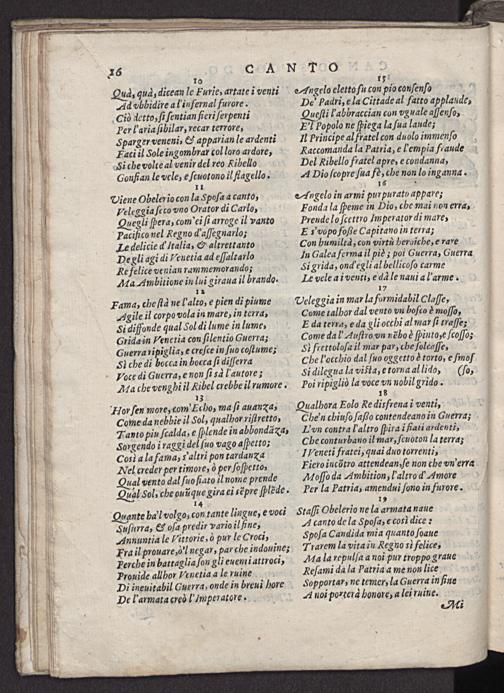 16
CANTO
10
Quà, quà, dicean le Furie, artate i venti
Ad vbbidire a l'infernal furore.
Ciò detto, si sentian fieri serpenti
Per l'aria sibilar, recar terrore,
Sparger veneni, & apparian le ardenti
Faci il Sole ingombrar col loro ardore,
Si che volte al venir del reo Ribello
Gonfian le vele, e scuotono il flagello.
11
Viene Obelerio con la Sposa a canto,
Veleggia seco vno Orator di Carlo,
Quegli spera, com'ei si arroge il vanto
Pacifico nel Regno d'assegnarlo;
Le delicie d'Italia, & altrettanto
De gli agi di Venetia ad essaltarlo
Re felice venian rammemorando;
Ma Ambitione in lui giraua il brando.
12
Fama, che stà ne l'alto, e pien di piume
Agile il corpo vola in mare, in terra,
Si diffonde qual Sol di lume in lume,
Grida in Venetia con silentio Guerra;
Guerra ripiglia, e cresce in suo costume;
Sì che di bocca in bocca si disserra
Voce di Guerra, e non si sà l'autore;
Ma che venghi il Ribel crebbe il rumore.
13
Hor sen more, com'Echo, ma si auanza,
Come da nebbie il Sol, qualhor ristretto,
Tanto piu scalda, e splende in abbondāza,
Sorgendo i raggi del suo vago aspetto;
Così a la fama, s'altri pon tardanza
Nel creder per timore, ò per sospetto,
Qual vento dal suo fiato il nome prende
Qual Sol, che ouūque gira ei sēpre splēde.
14
Quante ha'l volgo, con tante lingue, e voci
Susurra, & osa predir vario il fine,
Annuntia le Vittorie, ò pur le Croci,
Fra il prouare, ò'l negar, par che indouine;
Perche in battaglia son gli euenti attroci,
Prouide allhor Venetia a le ruine
Di ineuitabil Guerra, onde in breui hore
De l'armata creò l'Imperatore.
15
Angelo eletto fu con pio consenso
De' Padri, e la Cittade al fatto applaude,
Questi l'abbraccian con vguale assenso,
E'l Popolo ne spiega la sua laude;
Il Principe al fratel con duolo immenso
Raccomanda la Patria, e l'empia fraude
Del Ribello fratel apre, e condanna,
A Dio scopre sua fè, che non lo inganna.
16
Angelo in armi purpurato appare;
Fonda la speme in Dio, che mai non erra,
Prende lo scettro Imperator di mare,
E s'vopo fosse Capitano in terra;
Con humiltà, con virtù heroiche, e rare
In Galea ferma il piè; poi Guerra, Guerra
Si grida, ond'egli al bellicoso carme
Le vele a i venti, e dà le naui a l'arme.
17
Veleggia in mar la formidabil Classe,
Come talhor dal vento vn bosco è mosso,
E da terra, e da gli occhi al mar si trasse;
Come da l'Austro vn nēbo è spinto, e scosso;
Sì frettolosa il mar par, che solcasse,
Che l'occhio dal suo oggetto è torto, e smos
Si dilegua la vista, e torna al lido, (so,
Poi ripigliò la voce vn nobil grido.
18
Qualhora Eolo Re disfrena i venti,
Che'n chiuso sasso contendeano in Guerra;
L'vn contra l'altro spira i fiati ardenti,
Che conturbano il mar, scuoton la terra;
I Veneti fratei, quai duo torrenti,
Fiero incōtro attendean, se non che vn'erra
Mosso da Ambition, l'altro d'Amore
Per la Patria, amendui sono in furore.
19
Stassi Obelerio ne la armata naue
A canto de la Sposa, e così dice:
Sposa Candida mia quanto soaue
Trarem la vita in Regno si felice,
Ma la repulsa a noi pur troppo graue
Resami da la Patria a me non lice
Sopportar, ne temer, la Guerra in fine
A noi porterà honore, a lei ruine.
Mi